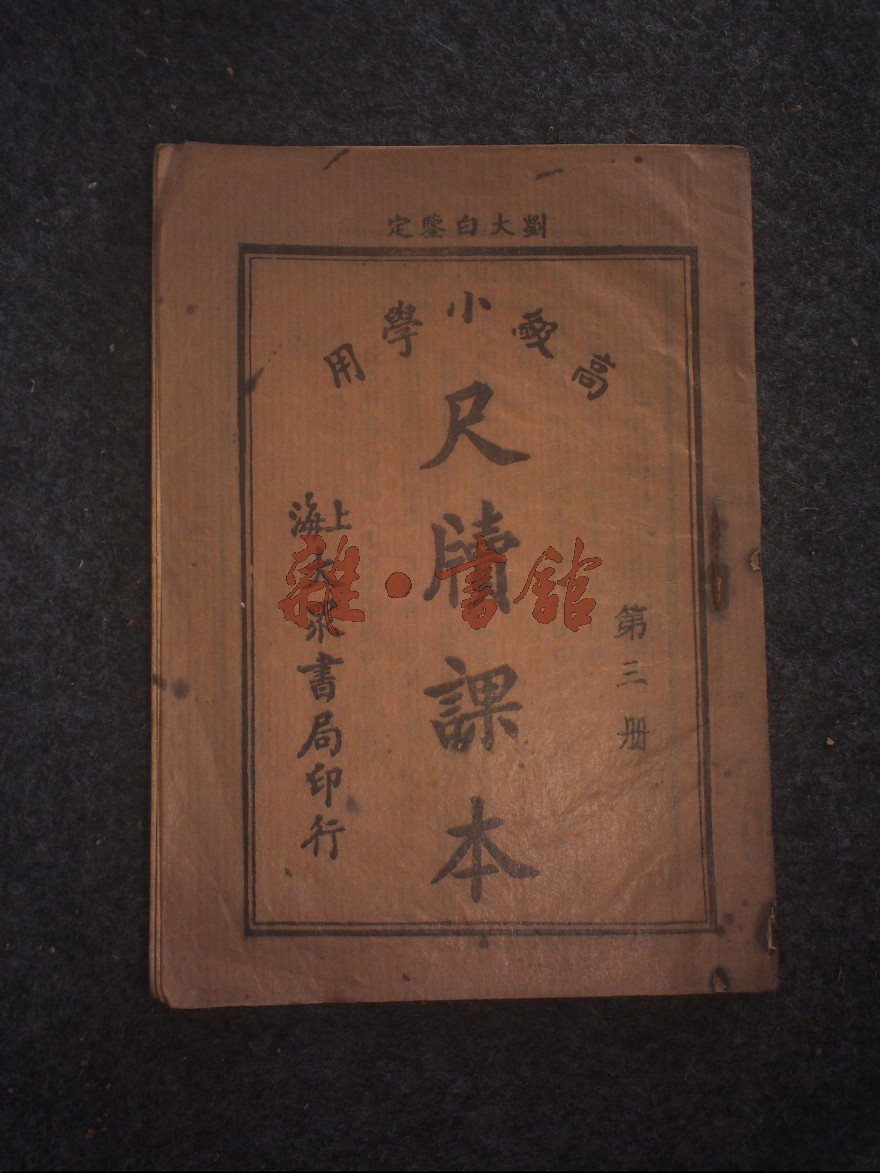 劉大白鑒定
高小學用
第三册
尺牘課本
上海
大書局印行
雜·書館